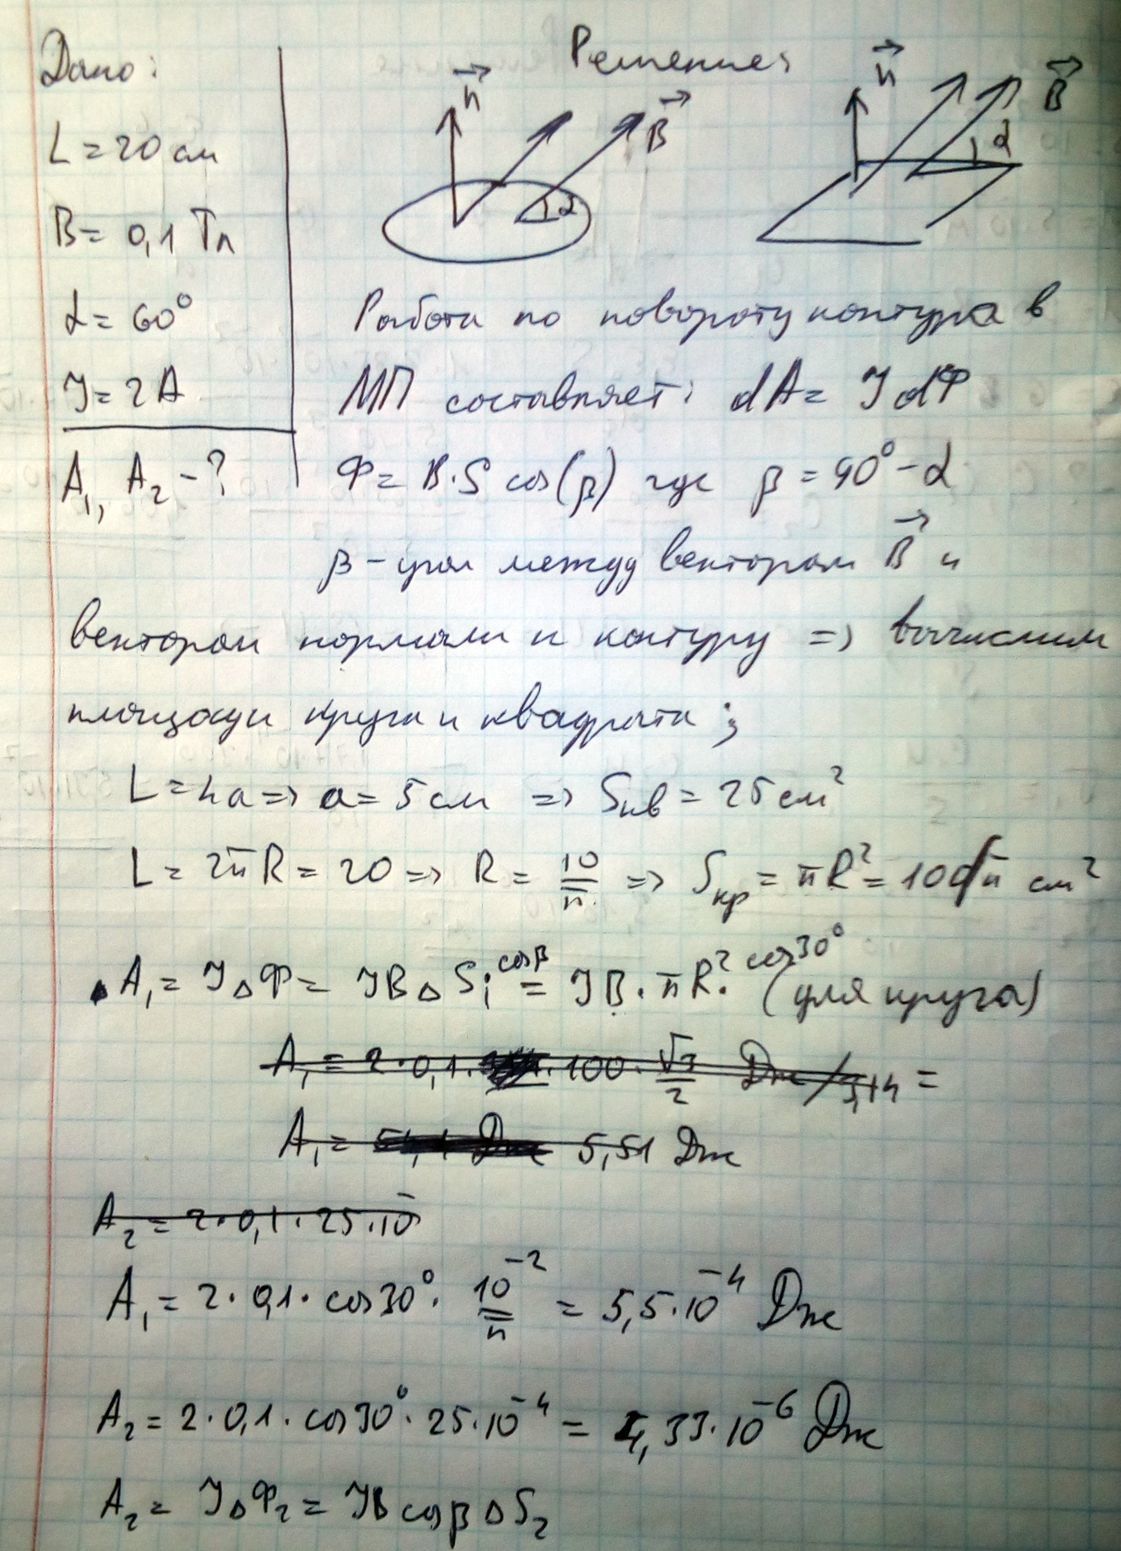 Дано:
Решение:
L = 20 см
B = 0,1 Тл
α = 60°
J = 2 A
A₁, A₂ - ?
n⃗
B⃗
α
n⃗
B⃗
α
Работа по повороту контура в
МП составляет: dA = J dФ
Ф = B·S cos(β) где β = 90° - α
β - угол между вектором B⃗ и
вектором нормали к контуру => вычислим
площади круга и квадрата:
L = 4a => a = 5 см => Sкв = 25 см²
L = 2πR = 20 => R = 10/π => Sкр = πR² = 100/π см²
A₁ = JΔФ = JBΔS₁ cosβ = JB·πR²· cos30° (для круга)
A₁ = 2·0,1· ·100·√3/2 Дж/3,14 =
A₁ = 5,51 Дж
A₂ = 2·0,1·25·10⁻
A₁ = 2·0,1·cos30°·10⁻²/π = 5,5·10⁻⁴ Дж
A₂ = 2·0,1·cos30°·25·10⁻⁴ = 4,33·10⁻⁶ Дж
A₂ = JΔФ₂ = JB cosβ ΔS₂